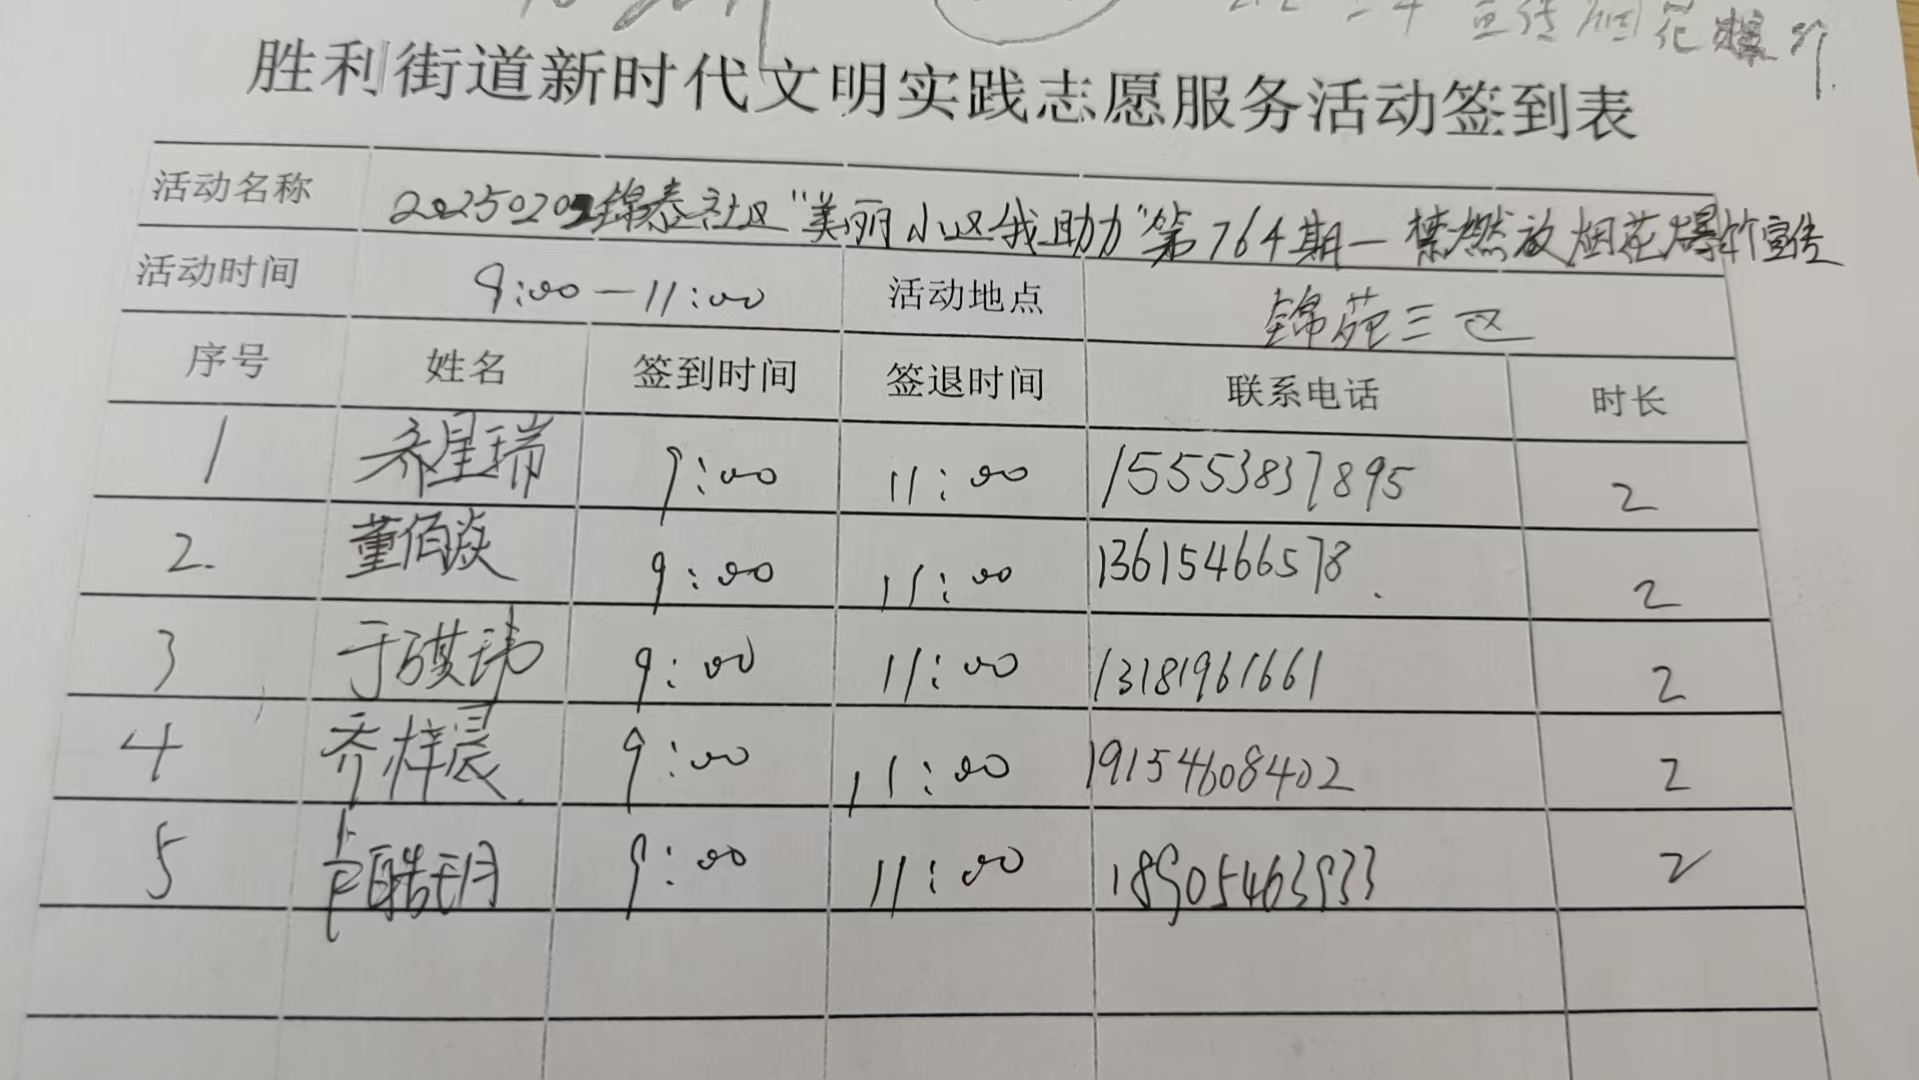 宣传烟花爆竹
胜利街道新时代文明实践志愿服务活动签到表
活动名称 20250202锦泰社区"美丽小区我助力"第764期—禁燃放烟花爆竹宣传
活动时间 9:00—11:00 活动地点 锦苑三区
序号 姓名 签到时间 签退时间 联系电话 时长
1 齐星瑞 9:00 11:00 15553837895 2
2. 董佰焱 9:00 11:00 13615466578 2
3 于祺玮 9:00 11:00 13181961661 2
4 乔梓晨 9:00 11:00 19154608402 2
5 9:00 11:00 18905463933 2